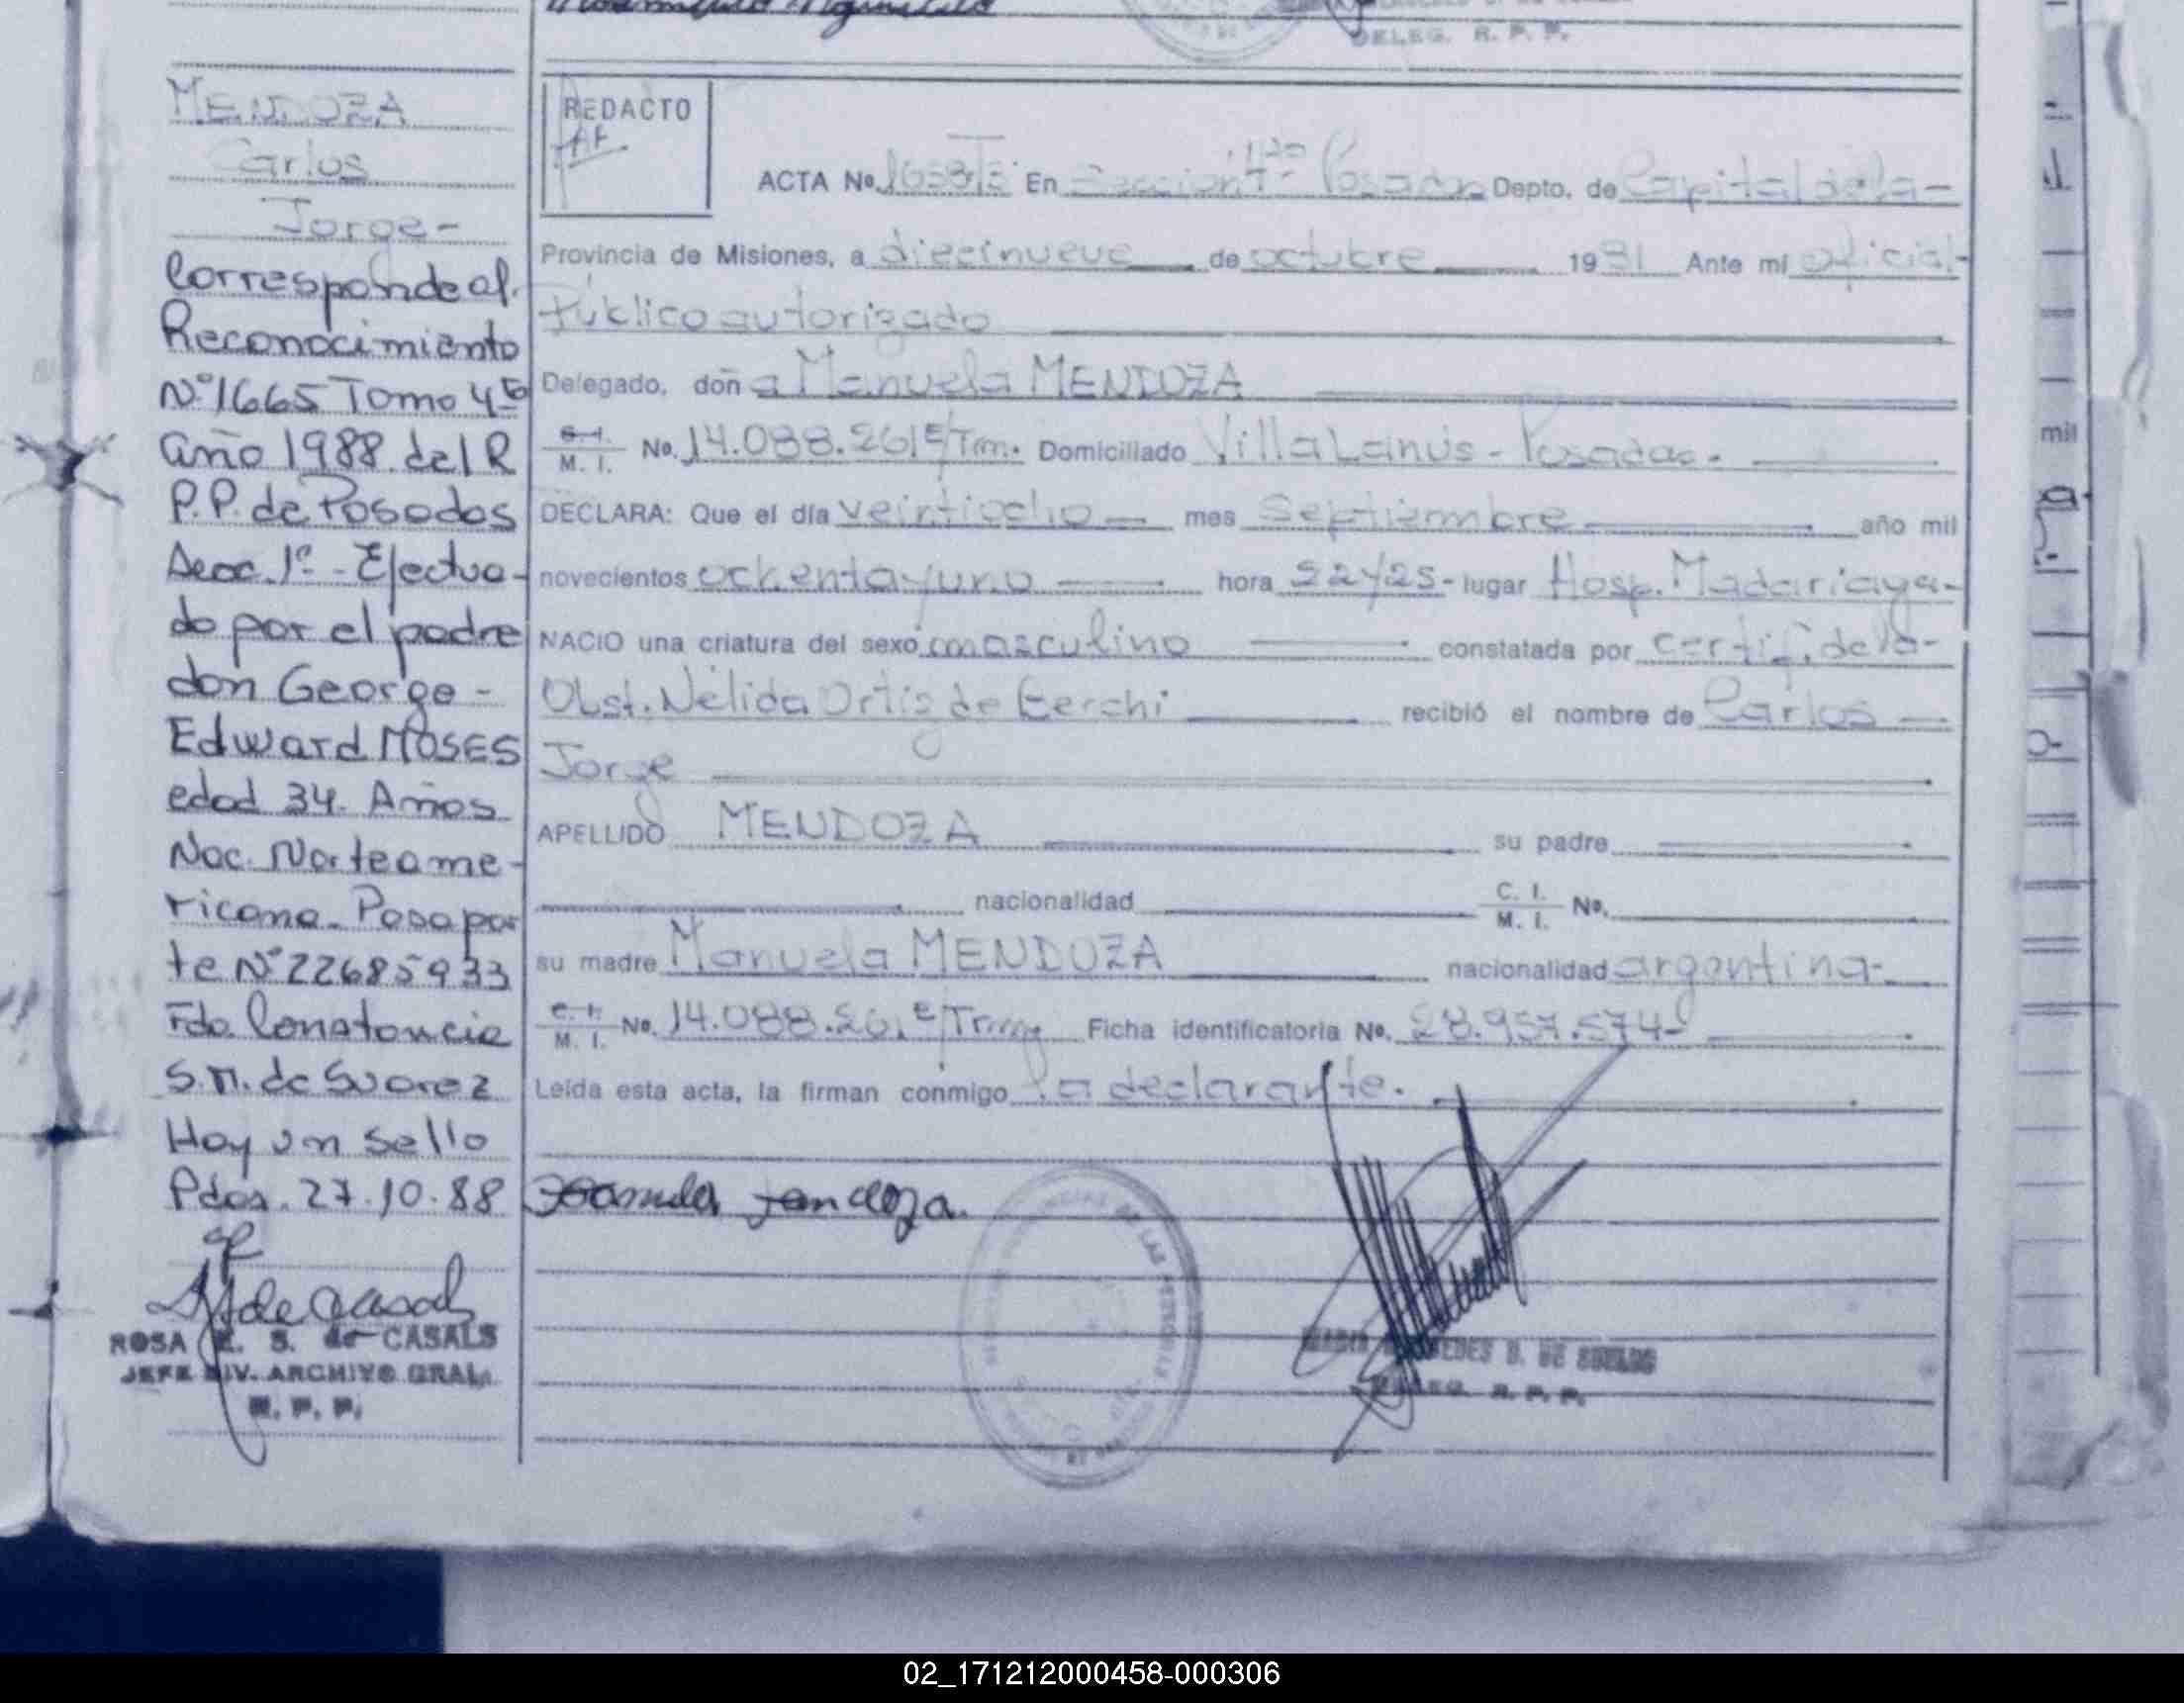 DELEG. R. P. P.
MENDOZA
Carlos
Jorge-
Corresponde al
Reconocimiento
Nº 1665 Tomo 4º
año 1988 del R
P.P. de Posadas
Secc. 1º - Efectua-
do por el padre
don George -
Edward MOSES
edad 34. Años
Nac. Norteame-
ricana. Pasapor
te Nº 22685933
Fdo. Constancia
S.M. de Suarez
Hay un sello
Pdas. 27.10.88
ROSA E. S. de CASALS
JEFE DIV. ARCHIVO GRAL.
R. P. P.
REDACTO
AF
ACTA Nº En Sección Posadas Depto. de Capital de la-
Provincia de Misiones, a diecinueve de octubre 1981 Ante mi oficial-
Público autorizado
Delegado, doña Manuela MENDOZA
C.I. M. I. No. 14.088.261 E/Trm. Domiciliado Villa Lanús - Posadas.
DECLARA: Que el día veintiocho mes Septiembre año mil
novecientos ochenta y uno hora 22/25- lugar Hosp. Madariaga-
NACIO una criatura del sexo masculino constatada por certif. de la-
Obst. Nélida Ortiz de recibió el nombre de Carlos
Jorge
APELLIDO MENDOZA su padre
nacionalidad C. I. M. I. Nº.
su madre Manuela MENDOZA nacionalidad argentina-
C.I. M. I. No. 14.088.261 E/Trm. Ficha identificatoria No. 28.957.574-
Leída esta acta, la firman conmigo la declarante.
DELEG. R. P. P.
mil
02_171212000458-000306